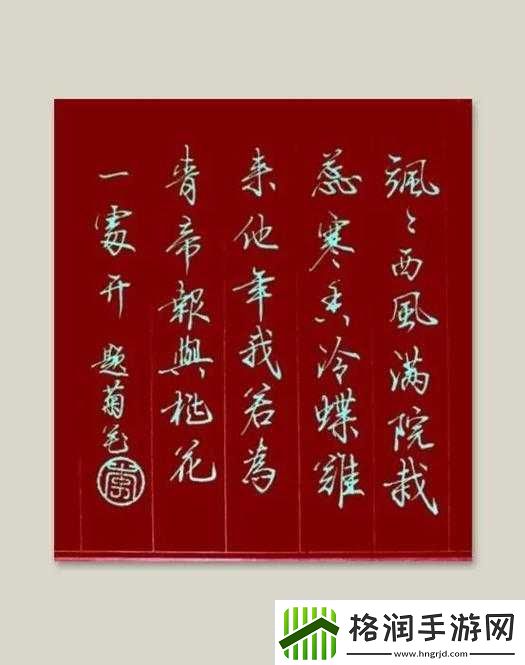 飒〻西風满院栽
蕊寒香冷蝶難
来他年我若為
青帝報與桃花
一處开 题菊花
格润手游网
www.hngrjd.com